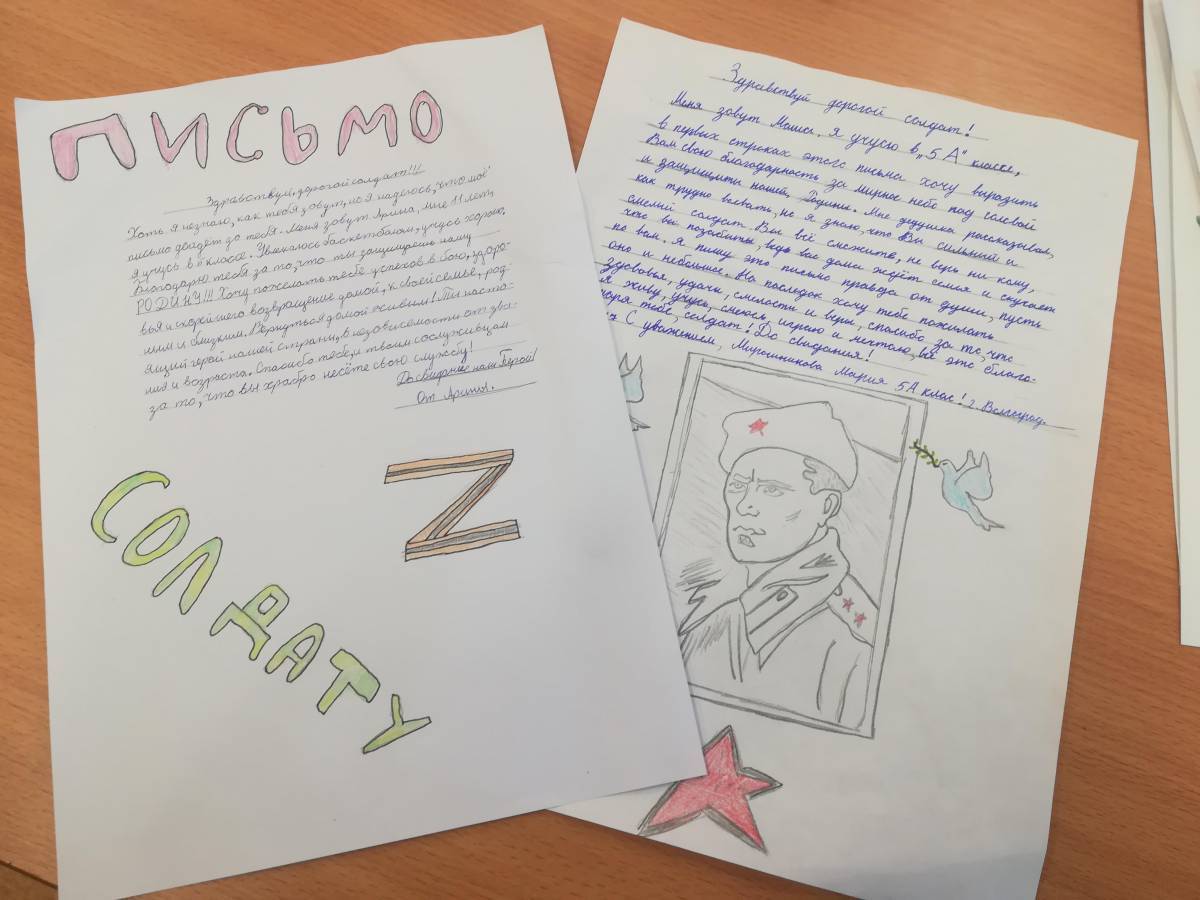 ПИСЬМО
Здравствуй, дорогой солдат!!!
Хоть я не знаю, как тебя зовут, но я надеюсь, что моё
письмо дойдёт до тебя. Меня зовут Арина, мне 11 лет,
я учусь в классе. Увлекаюсь баскетболом, учусь хорошо.
Благодарю тебя за то, что ты защищаешь нашу
РОДИНУ!!! Хочу пожелать тебе успехов в бою, здоро-
вья и скорейшего возвращение домой, к своей семье, род-
ным и близким. Вернуться домой живым! Ты насто-
ящий герой нашей страны, в независемости от зва-
ния и возраста. Спасибо тебе, и твоим сослуживцам
за то, что вы храбро несёте свою службу!
До свидание наш Герой!
От Арины.
СОЛДАТУ
Z
Здравствуй дорогой солдат!
Меня зовут Маша. Я учусю в "5 А" классе,
в первых строках этого письма хочу выразить
Вам свою благодарность за мирное небо под головой
и защищити нашей Родины. Мне дедушка рассказывал,
как трудно воевать, но я знаю, что Вы сильный и
смелый солдат. Вы всё сможите, не верь ни кому,
что вы позабыты, ведь вас дома ждёт семья и скучает
по вам. Я пишу это письмо правда от души, пусть
оно и небольшое. На последок хочу тебе пожилать
Здоровья, удачи, смелости и веры, спасибо за то, что
я живу, учусь, смеюсь, играю и мечтаю, всё это благо-
даря тебе, солдат! До свидания!
С уважением, Мирошникова Мария 5А клас! г. Волгоград.